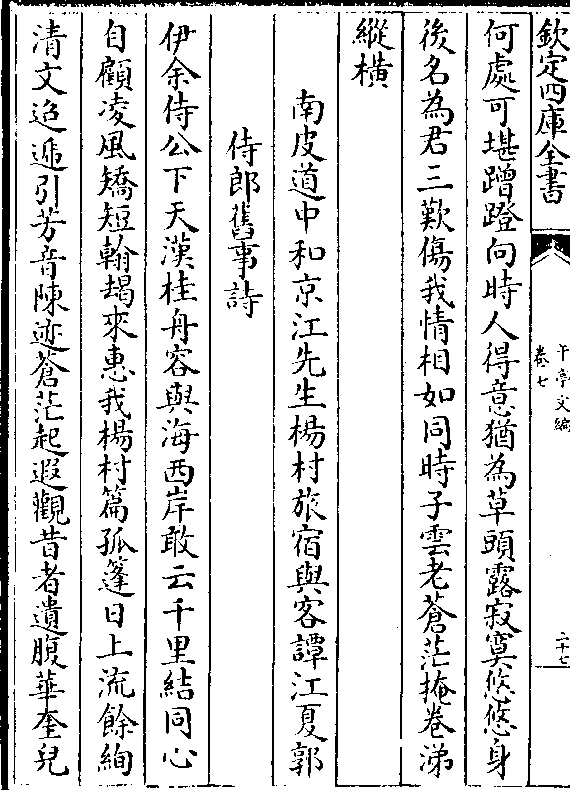 欽定四庫全書
午亭文編
卷七
二十七
何處可堪蹭蹬向時人得意猶為草頭露寂寞悠悠身
後名為君三歎傷我情相如同時子雲老蒼茫掩卷涕
縱橫
南皮道中和京江先生楊村旅宿與客譚江夏郭
侍郎舊事詩
伊余侍公下天漢桂舟容與海西岸敢云千里結同心
自顧凌風矯短翰朅來惠我楊村篇孤篷日上流餘絢
清文迢遞引芳音陳迹蒼茫起遐觀昔者遺腹華奎兒